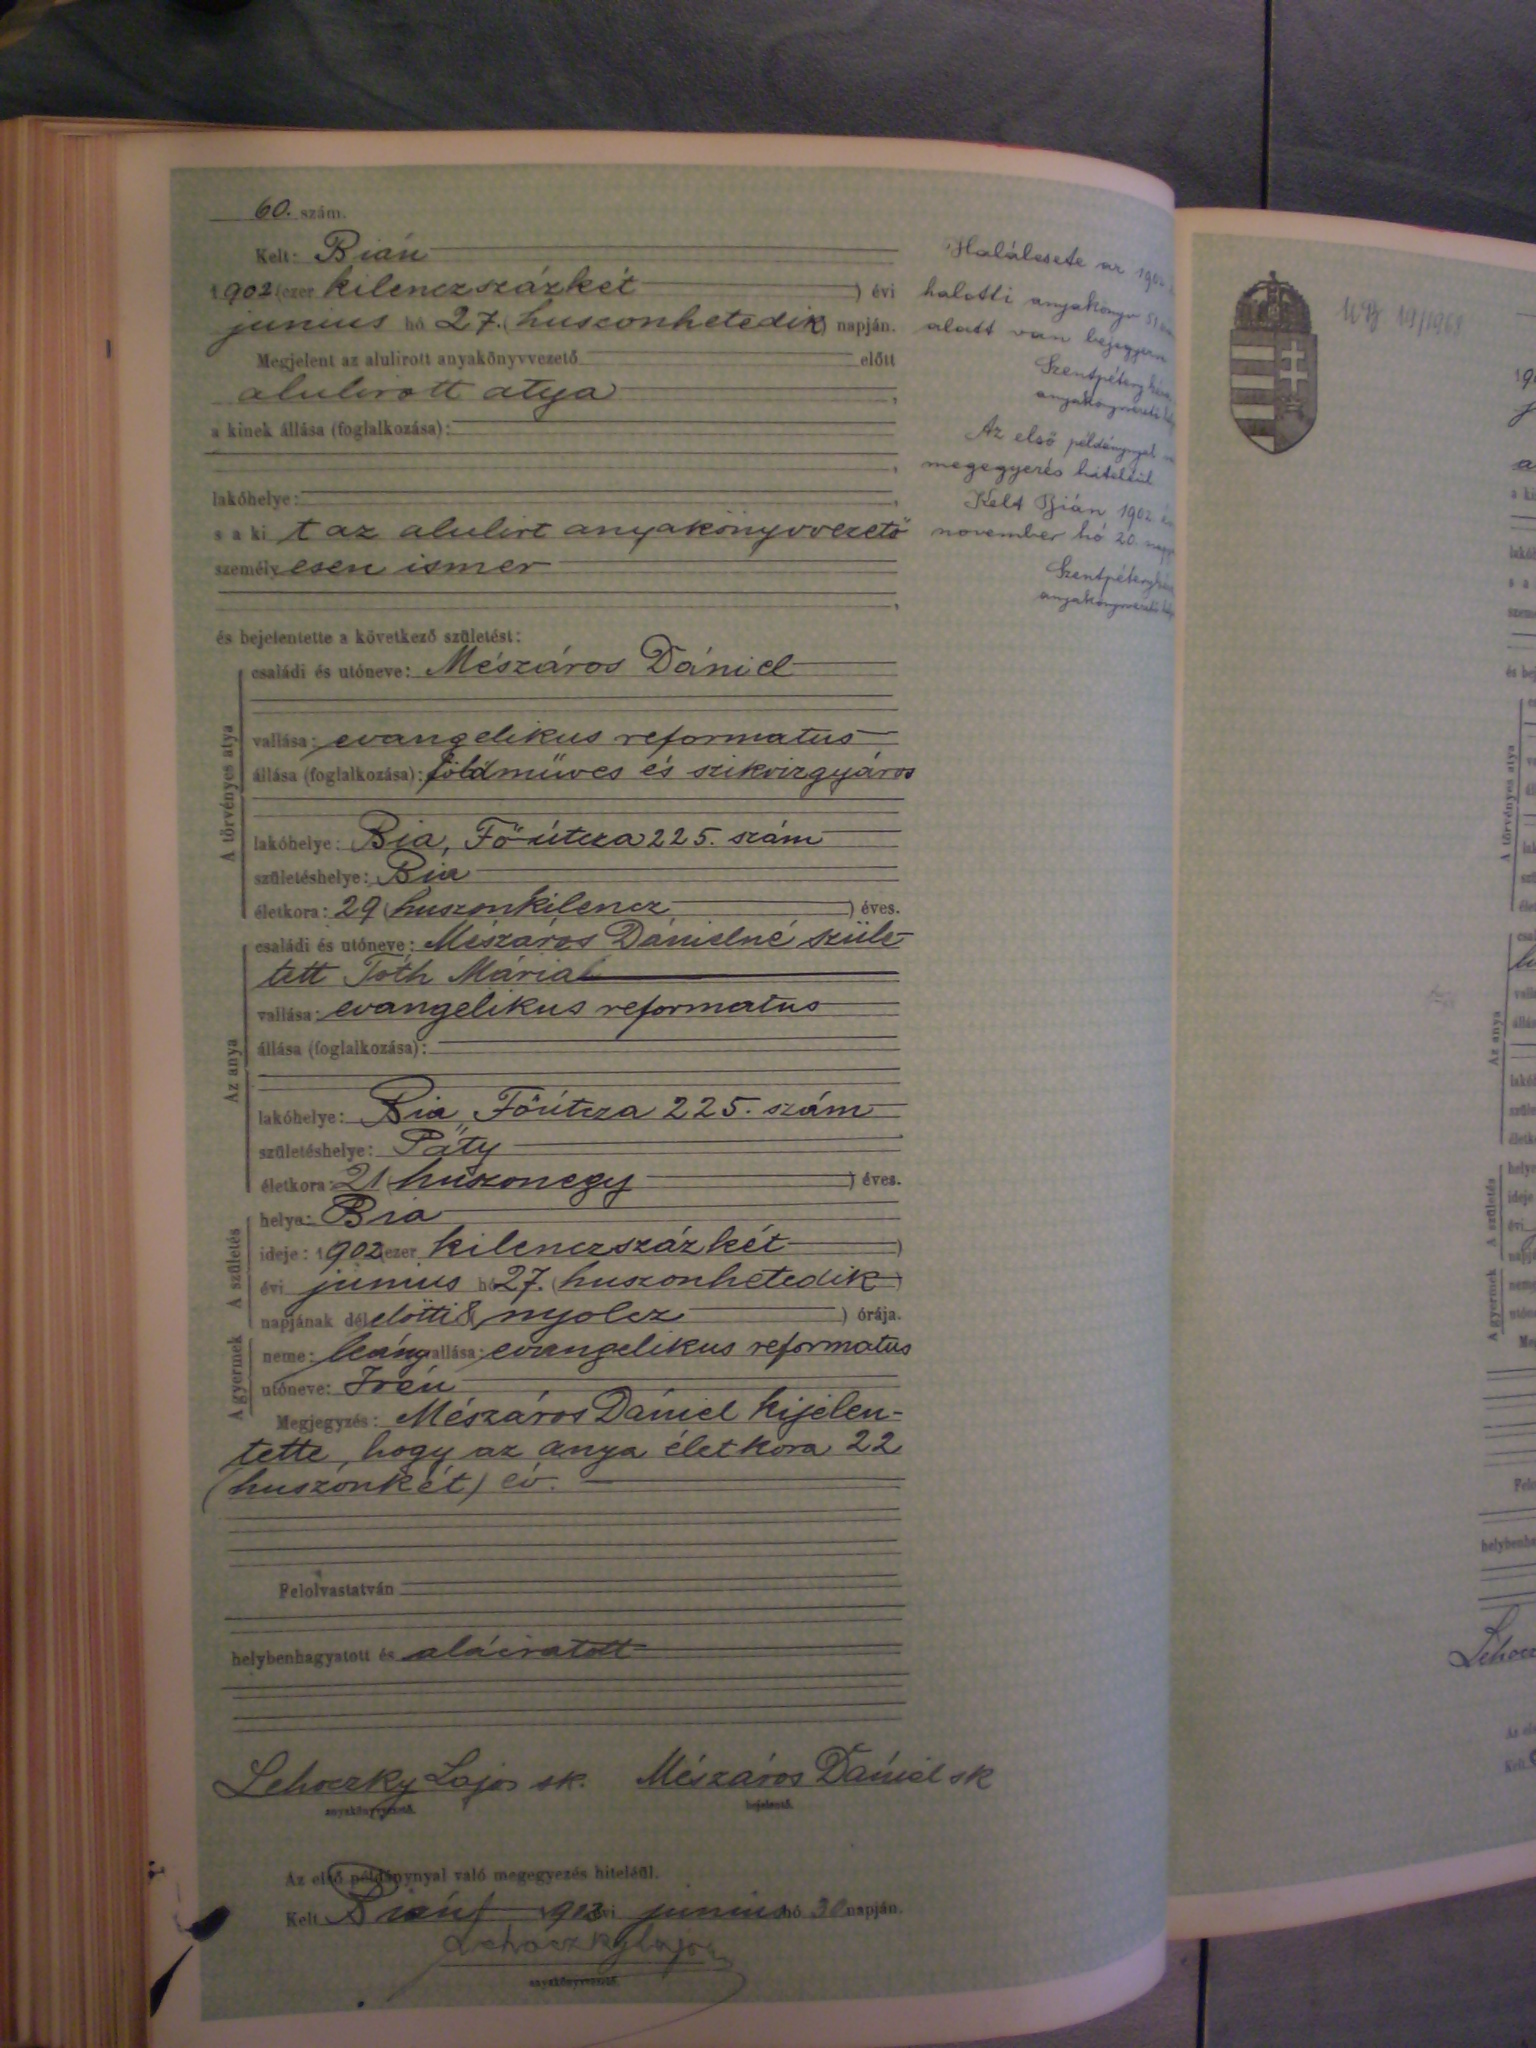 60. szám.
Kelt: Bián
1902 (ezer kilenczszázkét) évi
junius hó 27. (huszonhetedik) napján.
Megjelent az alulirott anyakönyvvezető előtt
alulirott atya,
a kinek állása (foglalkozása):
lakóhelye:
s a ki t az alulirt anyakönyvvezető
személyesen ismer
és bejelentette a következő születést:
A törvényes atya
családi és utóneve: Mészáros Dániel
vallása: evangelikus reformatus
állása (foglalkozása): földműves és szikvizgyáros
lakóhelye: Bia, Főútcza 225. szám
születéshelye: Bia
életkora: 29 (huszonkilencz) éves.
Az anya
családi és utóneve: Mészáros Dánielné szüle-
tett Tóth Mária
vallása: evangelikus reformatus
állása (foglalkozása):
lakóhelye: Bia, Főútcza 225. szám
születéshelye: Páty
életkora: 21 (huszonegy) éves.
A születés
helye: Bia
ideje: 1902 (ezer kilenczszázkét)
évi junius hó 27. (huszonhetedik)
napjának délelőtti 8 (nyolcz) órája.
A gyermek
neme: leány vallása: evangelikus reformatus
utóneve: Irén
Megjegyzés: Mészáros Dániel kijelen-
tette, hogy az anya életkora 22
(huszonkét) év.
Felolvastatván
helybenhagyatott és aláiratott
Lehoczky Lajos sk. Mészáros Dániel sk
anyakönyvvezető. bejelentő.
Az első példánynyal való megegyezés hiteléül.
Kelt Bián, 1902 évi junius hó 30 napján.
Lehoczky Lajos
anyakönyvvezető.
Halálesete az 1902
halotti anyakönyv 51
alatt van bejegyezve
Szentpétery
anyakönyvvezető
Az első példánynyal
megegyezés hiteléül
Kelt Bián 1902
november hó 20.
Szentpétery
anyakönyvvezető